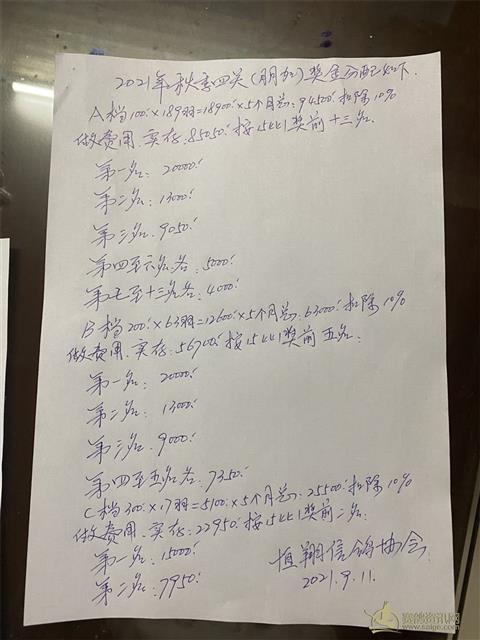 2021年秋季四关(朋加)奖金分配如下.
A档100.×189羽=18900.×5个月.:94500.扣除10%
做费用.实存:85050.按15比1奖前十三名.
第一名: 20000.
第二名: 13000.
第三名: 9050.
第四至六名各: 5000.
第七至十三名各: 4000.
B档200.×63羽=12600.×5个月.:63000.扣除10%
做费用.实存:56700.按15比1奖前五名.
第一名: 20000.
第二名: 13000.
第三名: 9000.
第四至五名各: 7350.
C档300.×17羽=5100.×5个月.:25500.扣除10%
做费用.实存:22950.按15比1奖前二名.
第一名: 15000.
第二名: 7950.
恒翔信鸽协会
2021.9.11.
赛鸽资讯网
www.saige.com